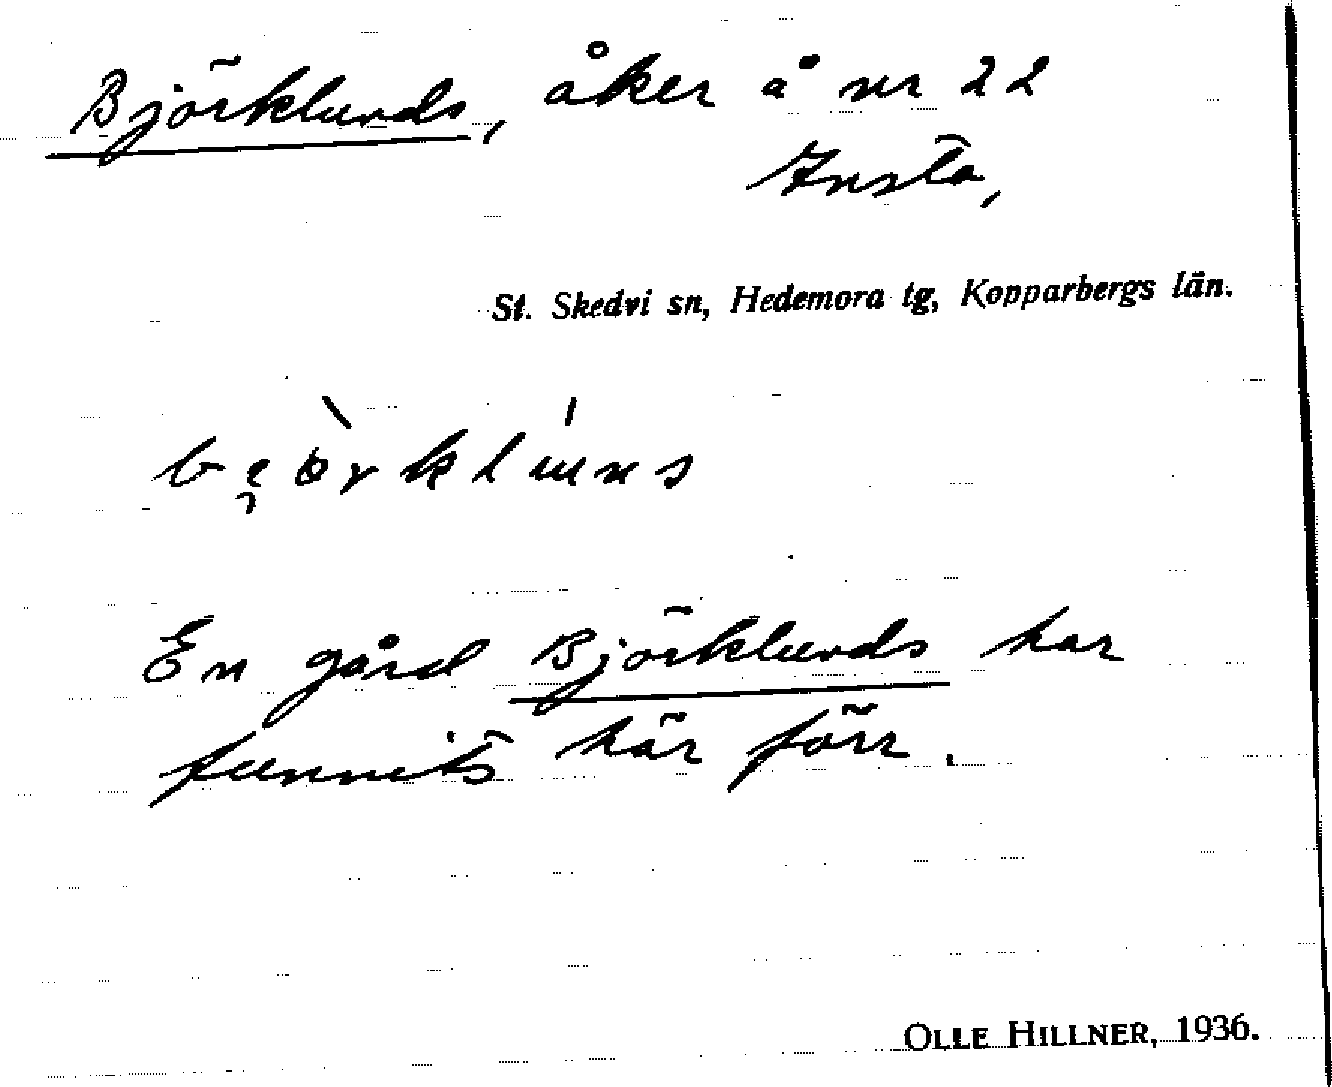 Björklunds, åker å nr 22
Insta,
St. Skedvi sn, Hedemora tg, Kopparbergs län.
En gård Björklunds har
funnits här förr.
OLLE HILLNER, 1936.